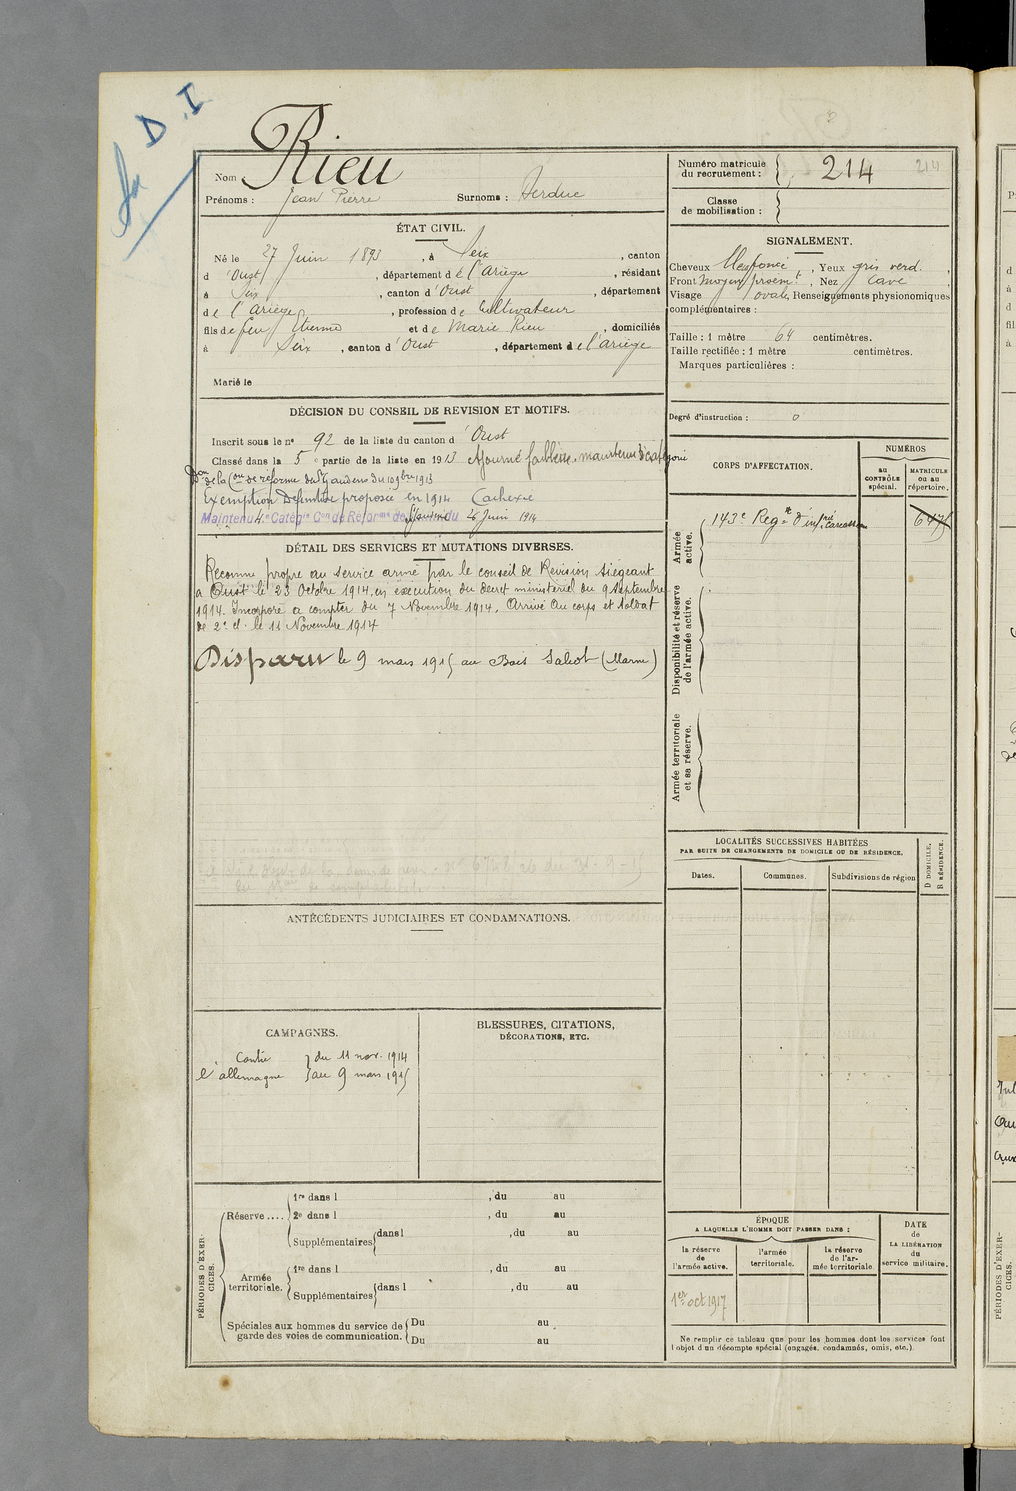 D.I
Nom Rieu
Prénoms : Jean Pierre Surnoms : Verduc
Numéro matricule du recrutement : 214 214
Classe de mobilisation :
ÉTAT CIVIL.
Né le 27 Juin 1893, à Seix, canton
d'Oust, département de l'Ariège, résidant
à Seix, canton d'Oust, département
de l'Ariège, profession de Cultivateur
fils de feu Etienne et de Marie Rieu, domiciliés
à Seix, canton d'Oust, département de l'ariège
Marié le
SIGNALEMENT.
Cheveux foncé, Yeux gris verd.
Front moyen proémt, Nez cave
Visage ovale, Renseignements physionomiques
complémentaires :
Taille : 1 mètre 64 centimètres.
Taille rectifiée : 1 mètre centimètres.
Marques particulières :
Degré d'instruction : 0
DÉCISION DU CONSEIL DE REVISION ET MOTIFS.
Inscrit sous le no 92 de la liste du canton d'Oust
Classé dans la 5e partie de la liste en 1913 Ajourné faiblesse maintenu
Don de la Con de réforme de St Gaudens du 10 9bre 1913
Exemption Définitive proposée en 1914 Cachexie
Maintenu 4e Catégie Con de Réforme de St Gaudens du 26 Juin 1914
DÉTAIL DES SERVICES ET MUTATIONS DIVERSES.
Reconnu propre au service armé par le conseil de Révision siégeant
a Oust le 23 Octobre 1914, en exécution du decret ministériel du 9 Septembre
1914. Incorporé a compter du 7 Novembre 1914, Arrivé au corps et soldat
de 2e cl. le 11 Novembre 1914
Disparu le 9 mars 1915 au Bois Sabot (Marne)
CORPS D'AFFECTATION.
NUMÉROS
AU CONTRÔLE spécial.
MATRICULE ou au répertoire.
Armée active.
143e Regt d'infrie Carcassonne
Disponibilité et réserve de l'armée active.
Armée territoriale et sa réserve.
LOCALITÉS SUCCESSIVES HABITÉES
PAR SUITE DE CHANGEMENTS DE DOMICILE OU DE RÉSIDENCE.
Dates. Communes. Subdivisions de région
D DOMICILE.
R RÉSIDENCE.
ANTÉCÉDENTS JUDICIAIRES ET CONDAMNATIONS.
CAMPAGNES.
Contre } du 11 nov. 1914
l'allemagne } au 9 mars 1915
BLESSURES, CITATIONS,
DÉCORATIONS, ETC.
PÉRIODES D'EXERCICES.
Réserve....
1re dans l , du au
2e dans l , du au
Supplémentaires dans l , du au
Armée territoriale.
1re dans l , du au
Supplémentaires dans l , du au
Spéciales aux hommes du service de
garde des voies de communication.
Du au
Du au
ÉPOQUE
A LAQUELLE L'HOMME DOIT PASSER DANS :
la réserve de l'armée active.
l'armée territoriale.
la réserve de l'armée territoriale.
DATE de LA LIBÉRATION du service militaire.
1er oct 1917
Ne remplir ce tableau que pour les hommes dont les services font
l'objet d'un décompte spécial (engagés, condamnés, omis, etc.).